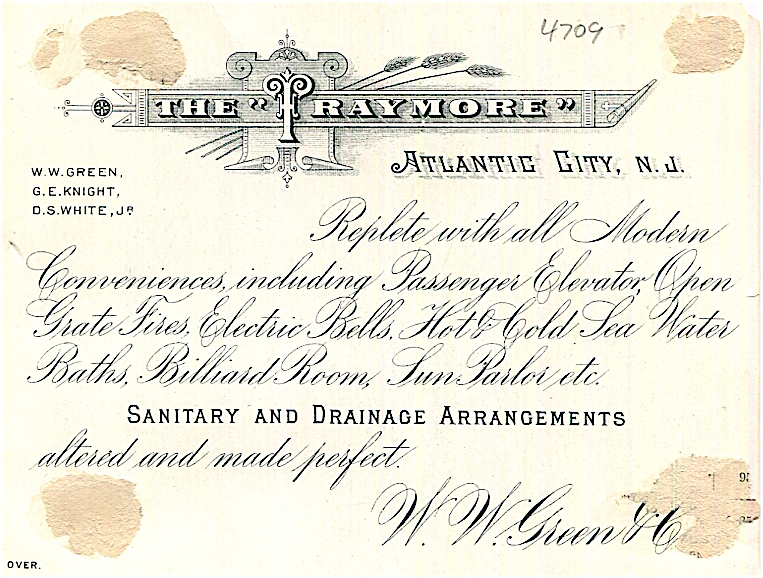 4709
THE "TRAYMORE"
ATLANTIC CITY, N.J.
W.W. GREEN,
G.E. KNIGHT,
D.S. WHITE, JR
Replete with all Modern
Conveniences, including Passenger Elevator, Open
Grate Fires, Electric Bells, Hot & Cold Sea Water
Baths, Billiard Room, Sun Parlor, etc.
SANITARY AND DRAINAGE ARRANGEMENTS
altered and made perfect.
W. W. Green & C
OVER.